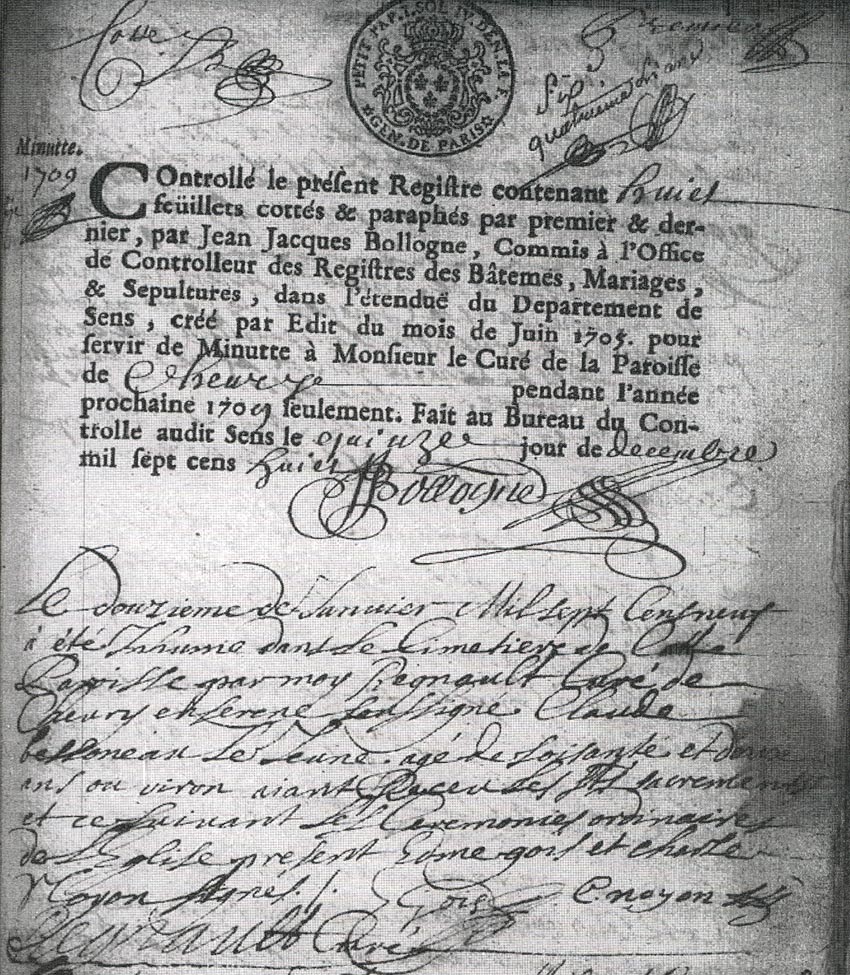 Cotte
PETIT PAP. I. SOL IV. DEN. LA F.
GEN. DE PARIS
Premier
Six
quatrieme
Minutte.
1709
COntrollé le présent Registre contenant huict
feüillets cottés & paraphés par premier & der-
nier, par Jean Jacques Bollogne, Commis à l'Office
de Controlleur des Registres des Bâtemes, Mariages,
& Sepultures, dans l'étenduë du Departement de
Sens, créé par Edit du mois de Juin 1705. pour
servir de Minutte à Monsieur le Curé de la Paroisse
de Cheury pendant l'année
prochaine 1709 seulement. Fait au Bureau du Con-
trolle audit Sens le quinzee jour de decembre
mil sept cens huict
JJBollogne
Le douzieme de Janvier Mil sept Cens neuf
à été Inhumé dans Le Cimetiere de Cette
Paroisse par moy Regnault Curé de
Cheury en Sereine soussigné Claude
Le Jeune agé de soisante et douze
ans ou viron aiant Receu Les Sts sacremens
et ce suivant Les Ceremonies ordinaires
de L'Eglise présent Edme gois et charle
Noyon signés.
Gois C. noyon
Regnault Curé